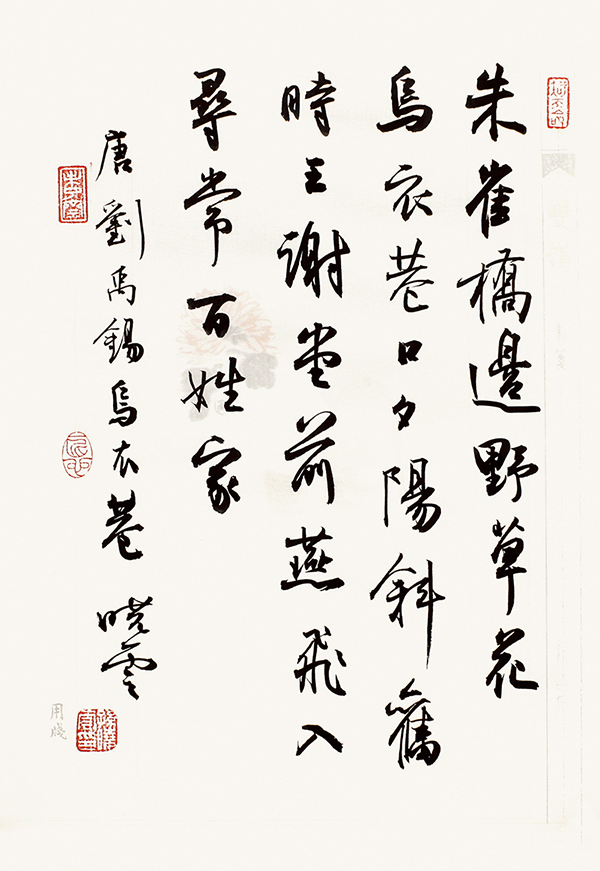 朱雀橋邊野草花
烏衣巷口夕陽斜舊
時王謝堂前燕飛入
尋常百姓家
唐劉禹錫烏衣巷 曉雲
用牋